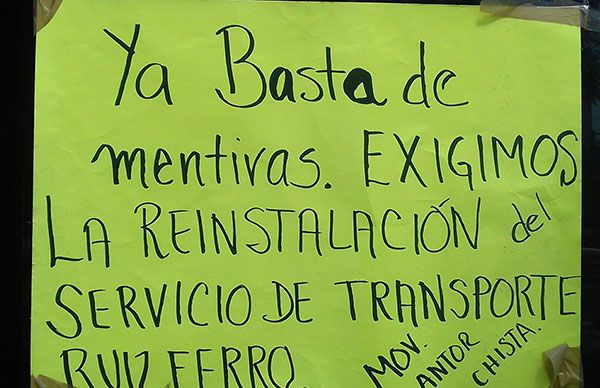 Ya Basta de
mentiras. EXIGIMOS
LA REINSTALACIÓN del
SERVICIO DE TRANSPORTE
RUIZ FERRO.
MOV.
ANTOR
CHISTA.